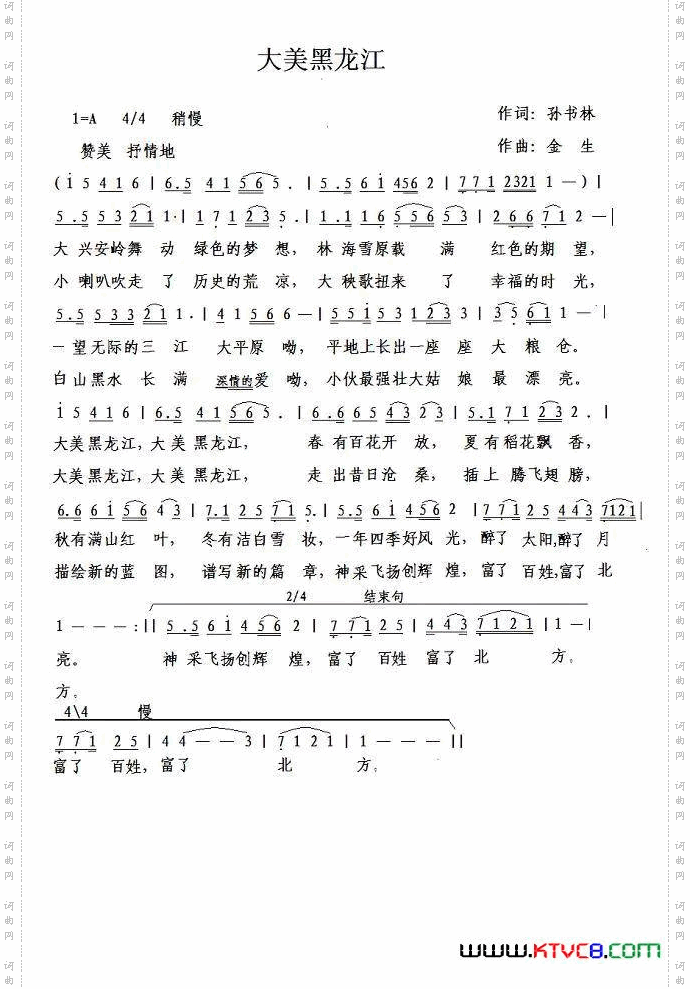 大美黑龙江
1=A 4/4 稍慢
作词: 孙书林
赞美 抒情地
作曲: 金 生
(i 5 4 1 6 | 6.5 4 1 5 6 5 . | 5.5 6 i 456 2 | 7 7 1 2321 1 —) |
5.5 5 3 2 1 1· | 1 7 1 2 3 5. | 1.1 1 6 5 5 6 5 3 | 2 6 6 7 1 2 — |
大 兴安岭舞 动 绿色的梦 想, 林 海雪原载 满 红色的期 望,
小 喇叭吹走 了 历史的荒 凉, 大 秧歌扭来 了 幸福的时 光,
5.5 5 3 3 2 1 1. | 4 1 5 5 6 6 — | 5 5 i 5 3 1 2 3 3 | 3 5 6 1 1 — |
一 望无际的三 江 大平原 呦, 平地上长出一座 座 大 粮 仓。
白山黑水 长 满 深情的爱 呦, 小伙最强壮大姑 娘 最 漂 亮。
i 5 4 1 6 | 6.5 4 1 5 6 5 . | 6.6 6 5 4 3 2 3 | 5.1 7 1 2 3 2 . |
大美黑龙江, 大 美 黑龙江, 春 有百花开 放, 夏 有稻花飘 香,
大美黑龙江, 大 美 黑龙江, 走 出昔日沧 桑, 插上 腾飞翅 膀,
6.6 6 i 5 6 4 3 | 7.1 2 5 7 1 5. | 5.5 6 i 4 5 6 2 | 7 7 1 2 5 4 4 3 7121 |
秋有满山红 叶, 冬有洁白雪 妆, 一年四季好风 光, 醉了 太阳,醉了 月
描绘新的蓝 图, 谱写新的篇 章, 神采飞扬创辉 煌, 富了 百姓,富了 北
2/4 结束句
1 — — — :|| 5.5 6 i 4 5 6 2 | 7 7 1 2 5 | 4 4 3 7 1 2 1 | 1 — |
亮。 神 采飞扬创辉 煌, 富了 百姓 富了 北 方。
方。
4\4 慢
7 7 1 2 5 | 4 4 — — 3 | 7 1 2 1 | 1 — — — ||
富了 百姓, 富了 北 方。
www.KTVC8.com